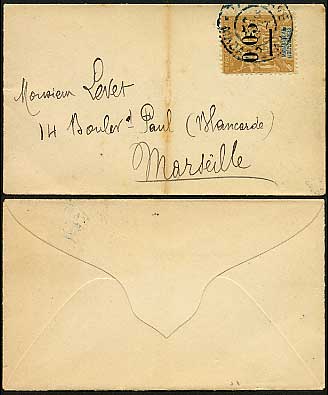 0.05
Monsieur Lovet
14 Boulevd Paul (Blancarde)
Marseille